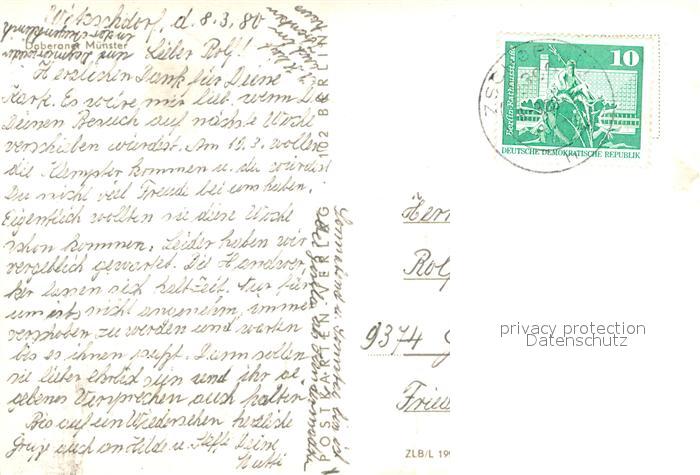 Witzschdorf, d. 8.3.80
Doberaner Münster
Lieber Rolf!
Herzlichen Dank für Deine
Karte. Es wäre mir lieb, wenn Du
Deinen Besuch auf nächste Woche
verschieben würdest. Am 10.3. wollen
die Klempter kommen u. da würdest
Du nicht viel Freude bei uns haben.
Eigentlich wollten sie diese Woche
schon kommen. Leider haben wir
vergeblich gewartet. Die Handwer,
ker lassen sich halt Zeit. Nur für
uns ists nicht angenehm, immer
verschoben zu werden und warten
bis es ihnen paßt. Dann sollen
sie lieber ehrlich sein und ihr ge,
gebenes Versprechen auch halten.
Bis auf ein Wiedersehen herzliche
Grüße auch an Hilde u. Steffi Deine
Mutti
POSTKARTEN-VERLAG
102 BERLIN
Sonnabend u. Sonntag
Berlin-Rathausstraße
10
DEUTSCHE DEMOKRATISCHE REPUBLIK
Herr
Rolf
9374
Fried
ZLB/L 19
privacy protection
Datenschutz